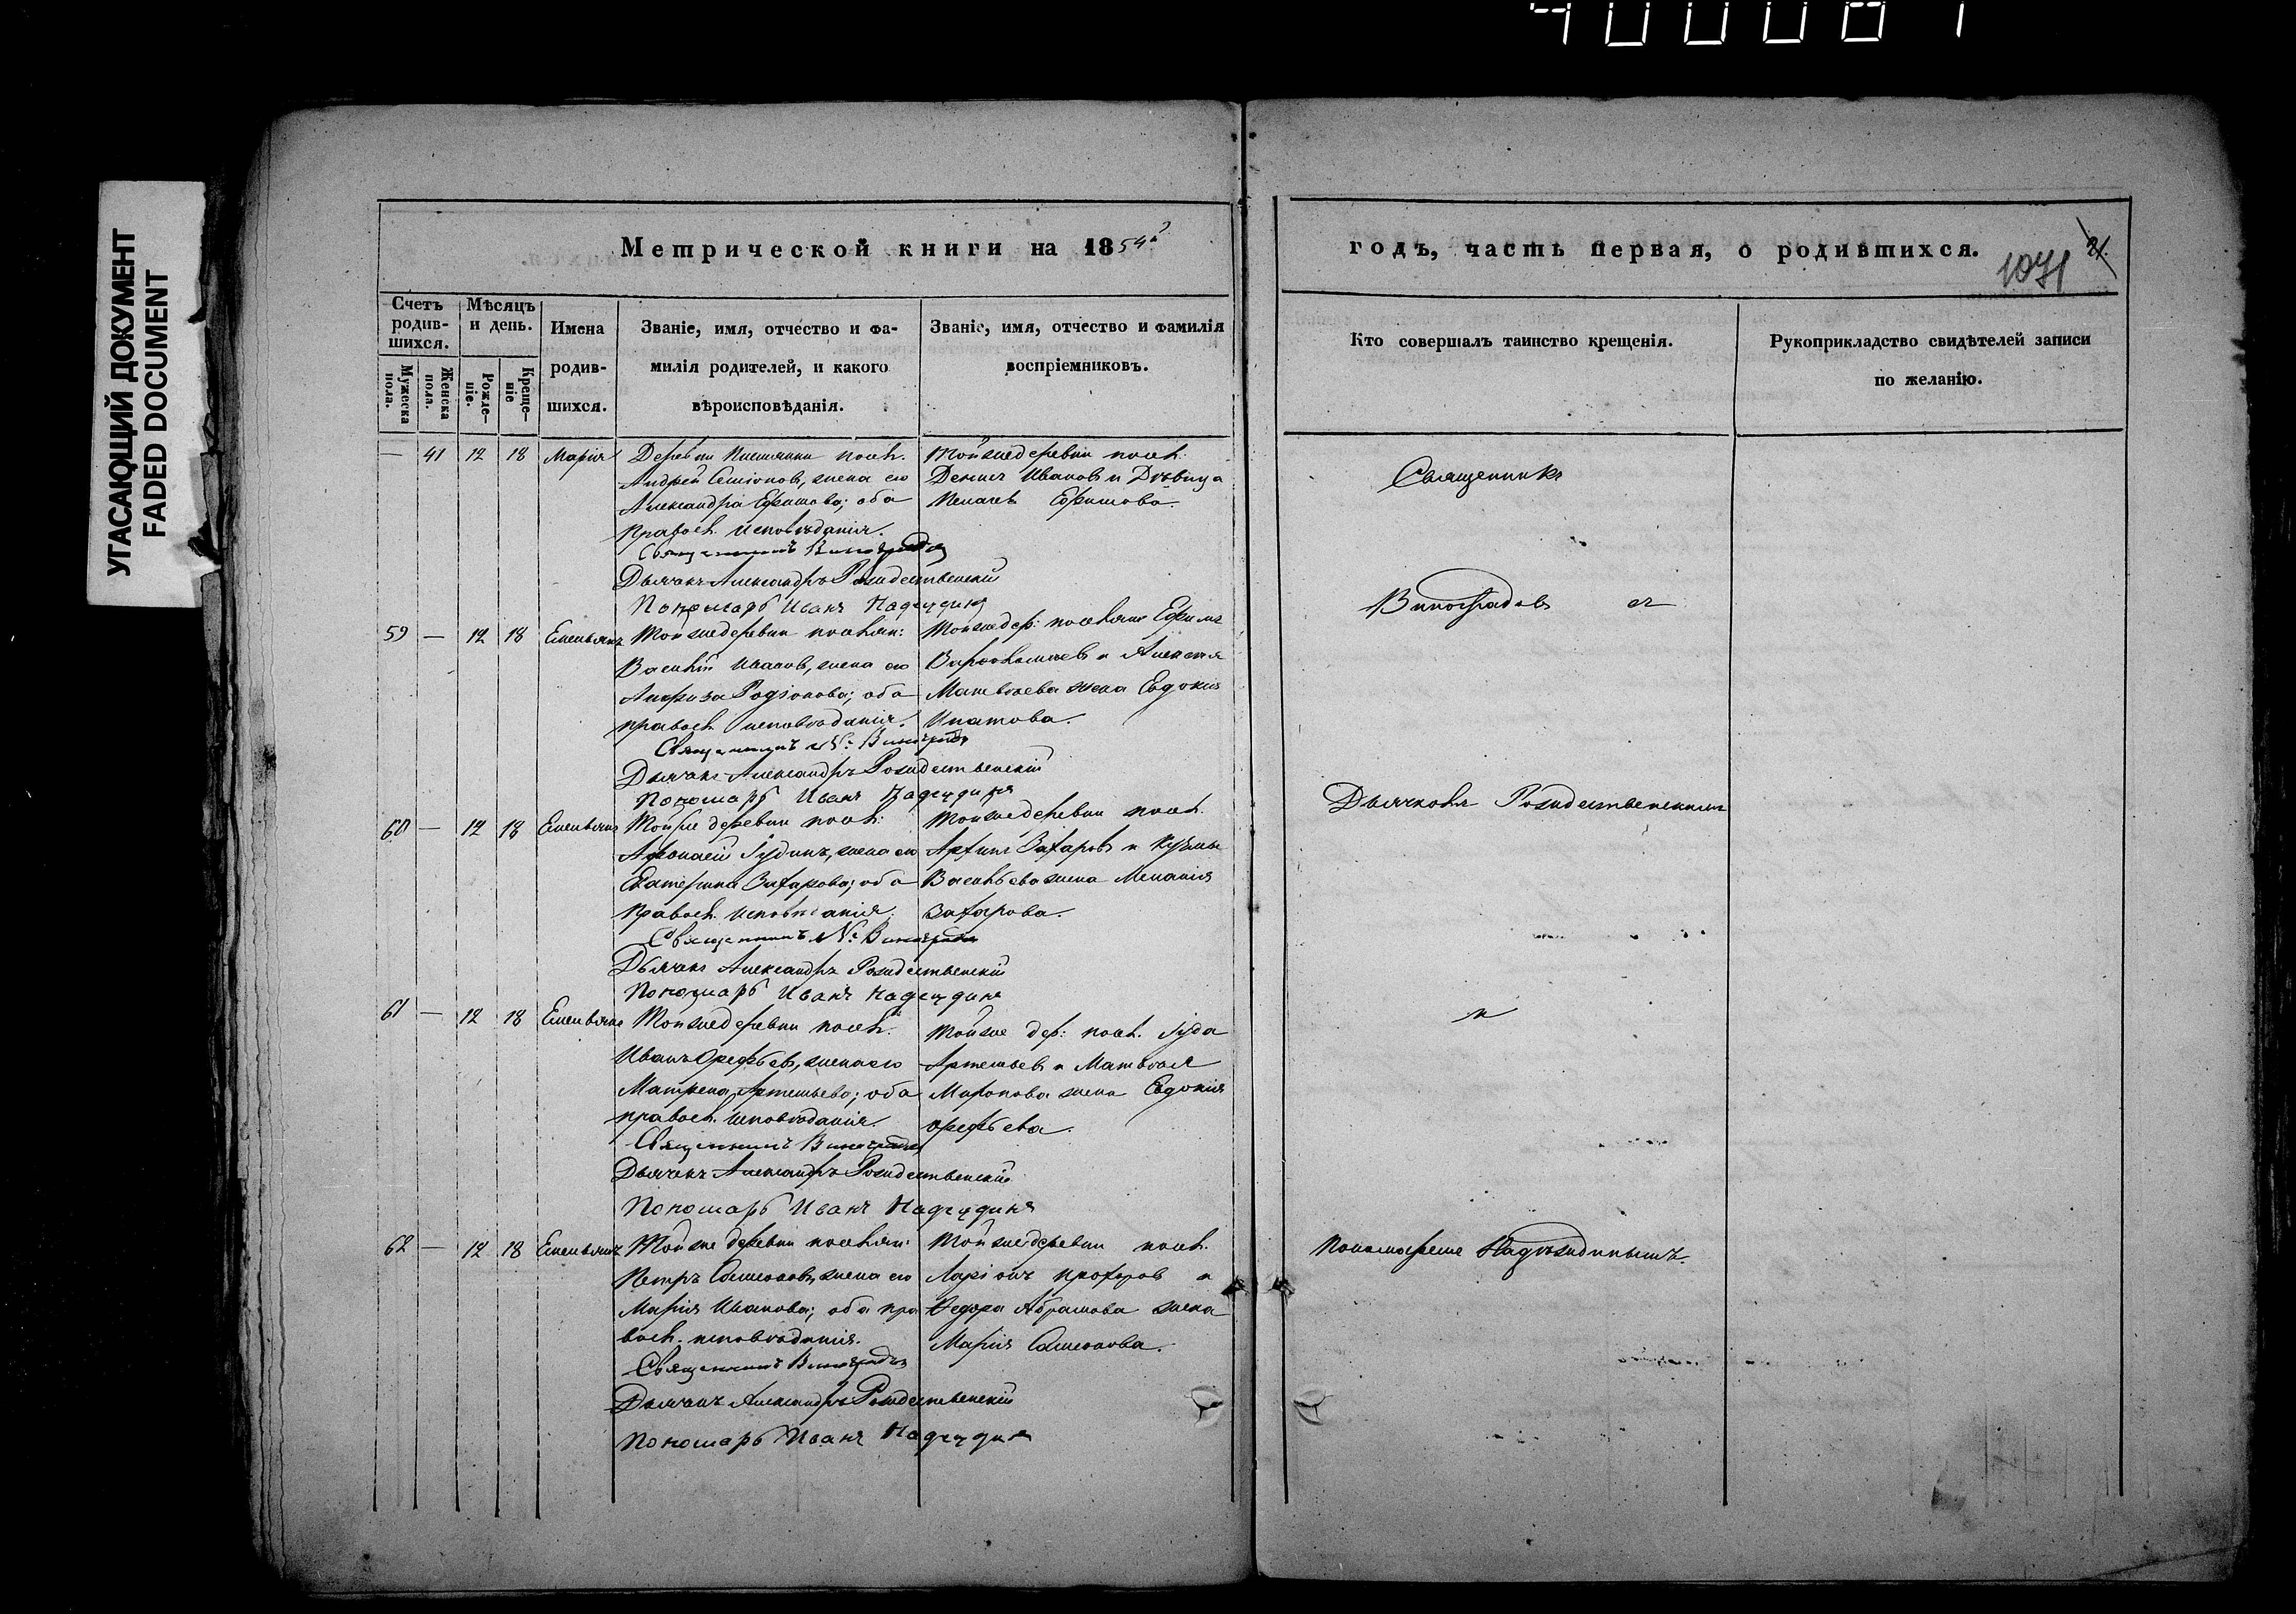 400081
УГАСАЮЩИЙ ДОКУМЕНТ
FADED DOCUMENT
Метрической книги на 1854й
годъ, часть первая, о родившихся.
1071
21.
Счетъ родив-шихся.
Мужеска пола.
Женска пола.
Мѣсяцъ и день.
Рожде-ніе.
Креще-ніе
Имена родив-шихся.
Званіе, имя, отчество и фа-
милія родителей, и какого
вѣроисповѣданія.
Званіе, имя, отчество и фамилія
воспріемниковъ.
Кто совершалъ таинство крещенія.
Рукоприкладство свидѣтелей записи
по желанію.
— 41 12 18 Марія
Деревни посел.
Андрей Семіоновъ, жена его
Александра Ефимова; оба
правосл. исповѣданія.
Священникъ Виноградовъ
Дьячекъ Александръ Рождественскій
Пономарь Иванъ Надеждинъ
Тойже деревни посел.
Денисъ Ивановъ и Дѣвица
Ефимова.
59 — 12 18 Емельянъ
Тойже деревни поселян:
Василій Ивановъ, жена его
Анфиза Родіонова; оба
правосл. исповѣданія.
Священникъ Н: Виноградовъ
Дьячекъ Александръ Рождественскій
Пономарь Иванъ Надеждинъ
Тойже дер: поселяне Ефимъ
Варфоломеевъ и Алексѣя
Матвѣева жена Евдокія
Ипатова.
60 — 12 18 Емельянъ
Тойже деревни посел:
Афонасій Іудинъ, жена его
Екатерина Захарова; оба
правосл. исповѣданія.
Священникъ Н: Виноградовъ
Дьячекъ Александръ Рождественскій
Пономарь Иванъ Надеждинъ
Тойже деревни посел.
Архипъ Захаровъ и Кузьмы
Васильева жена Меланія
Захарова.
61 — 12 18 Емельянъ
Тойже деревни посел.
Иванъ Орефьевъ, жена его
Матрена Артемьева; оба
правосл. исповѣданія.
Священникъ Виноградовъ
Дьячекъ Александръ Рождественскій
Пономарь Иванъ Надеждинъ
Тойже дер: посел. Іуда
Артемьевъ и Матвѣя
Миронова жена Евдокія
Орефьева.
62 — 12 18 Емельянъ
Тойже деревни поселян:
Петръ Самсоновъ, жена его
Марія Иванова; оба пра
восл. исповѣданія.
Священникъ Виноградовъ
Дьячекъ Александръ Рождественскій
Пономарь Иванъ Надеждинъ
Тойже деревни посел.
Ларіонъ Прохоровъ и
Федора Абрамова жена
Марія Самсонова.
Священникъ
Виноградовъ съ
Дьячкомъ Рождественскимъ
и
Пономаремъ Надѣждинымъ.